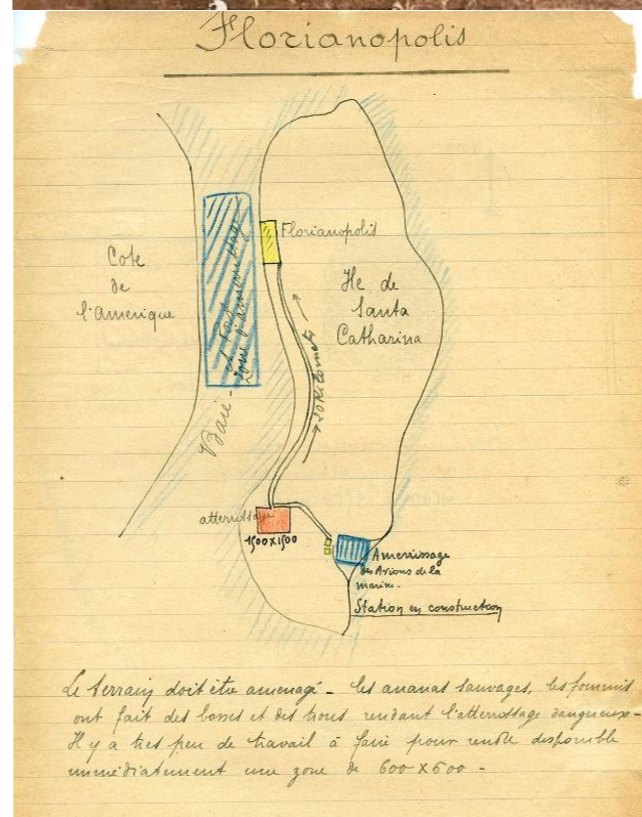 Florianopolis
Cote
de
l'Amerique
Baie
zone d'amerrissage
Florianopolis
Ile de
Santa
Catharina
atterrissage
1500x1500
Amerrissage
des Avions de la
marine.
Station en construction
Le terrain doit être amenagé - les ananas sauvages, les fourmis
ont fait des bosses et des trous rendant l'atterrissage dangereux -
Il y a tres peu de travail à faire pour rendre disponible
immédiatement une zone de 600 x 600 -